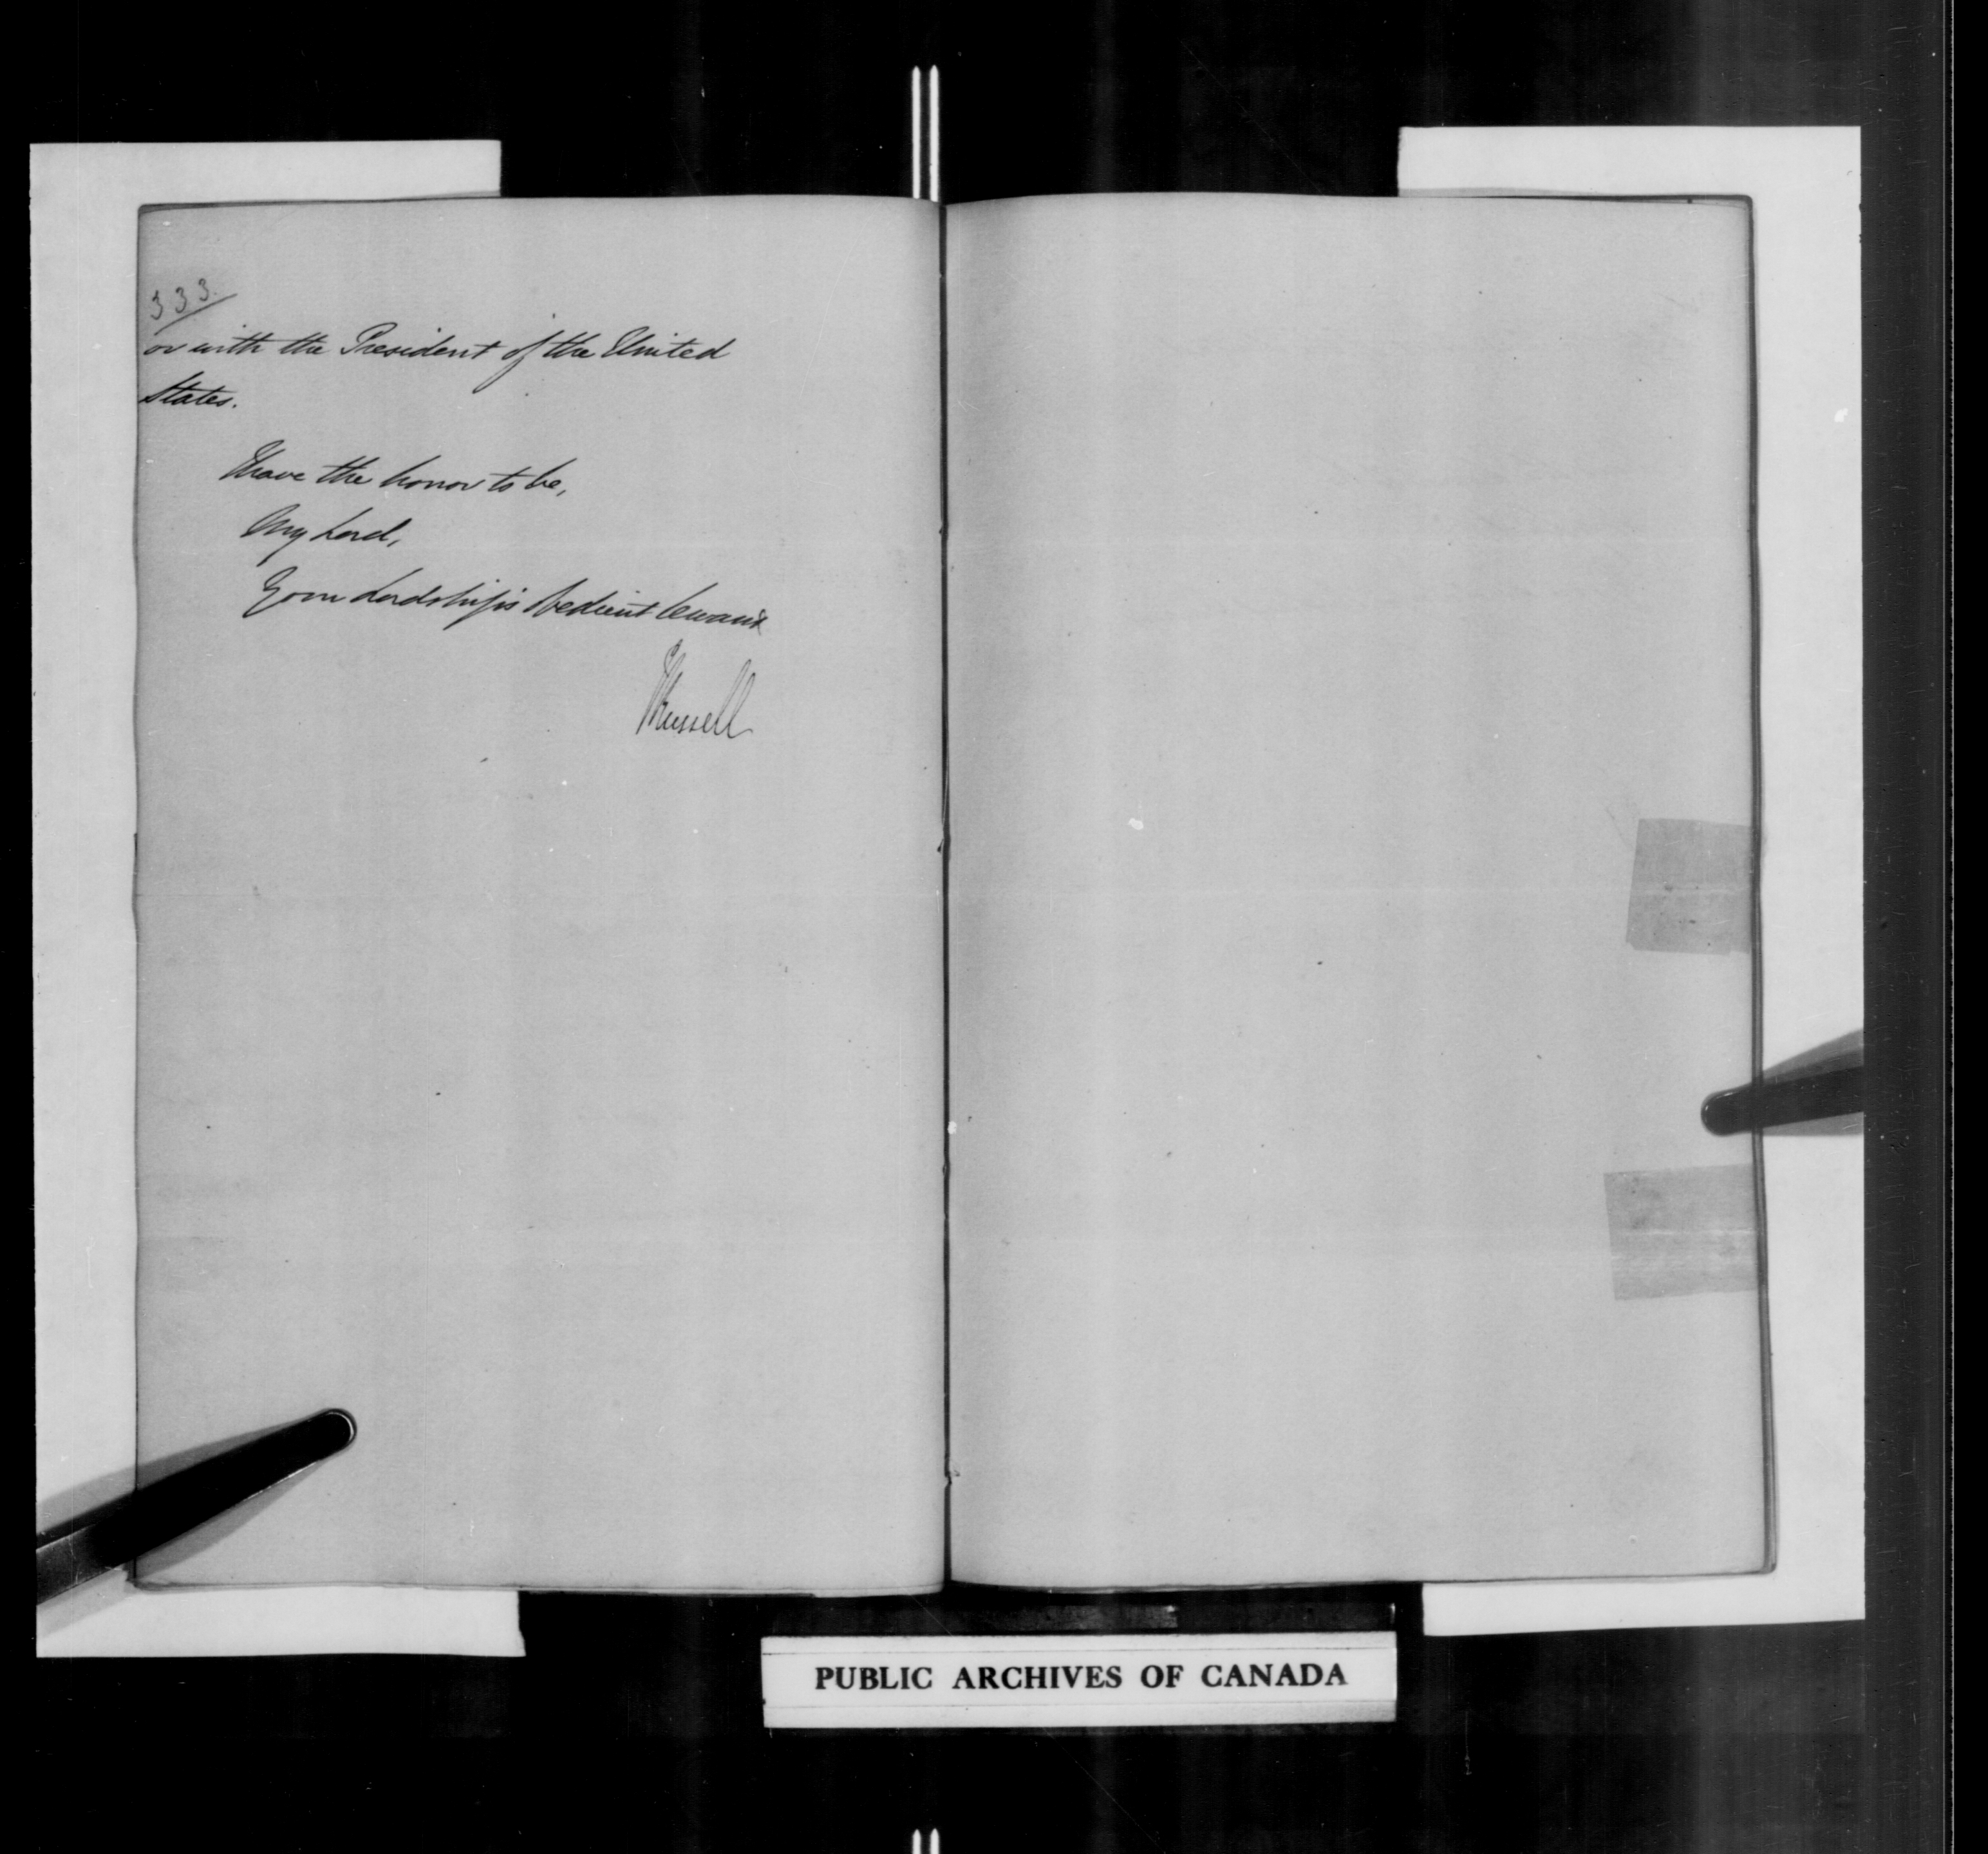 333
or with the President of the United
States.
I have the honor to be,
My Lord,
Your Lordship's Obedient Servant
JRussell
PUBLIC ARCHIVES OF CANADA